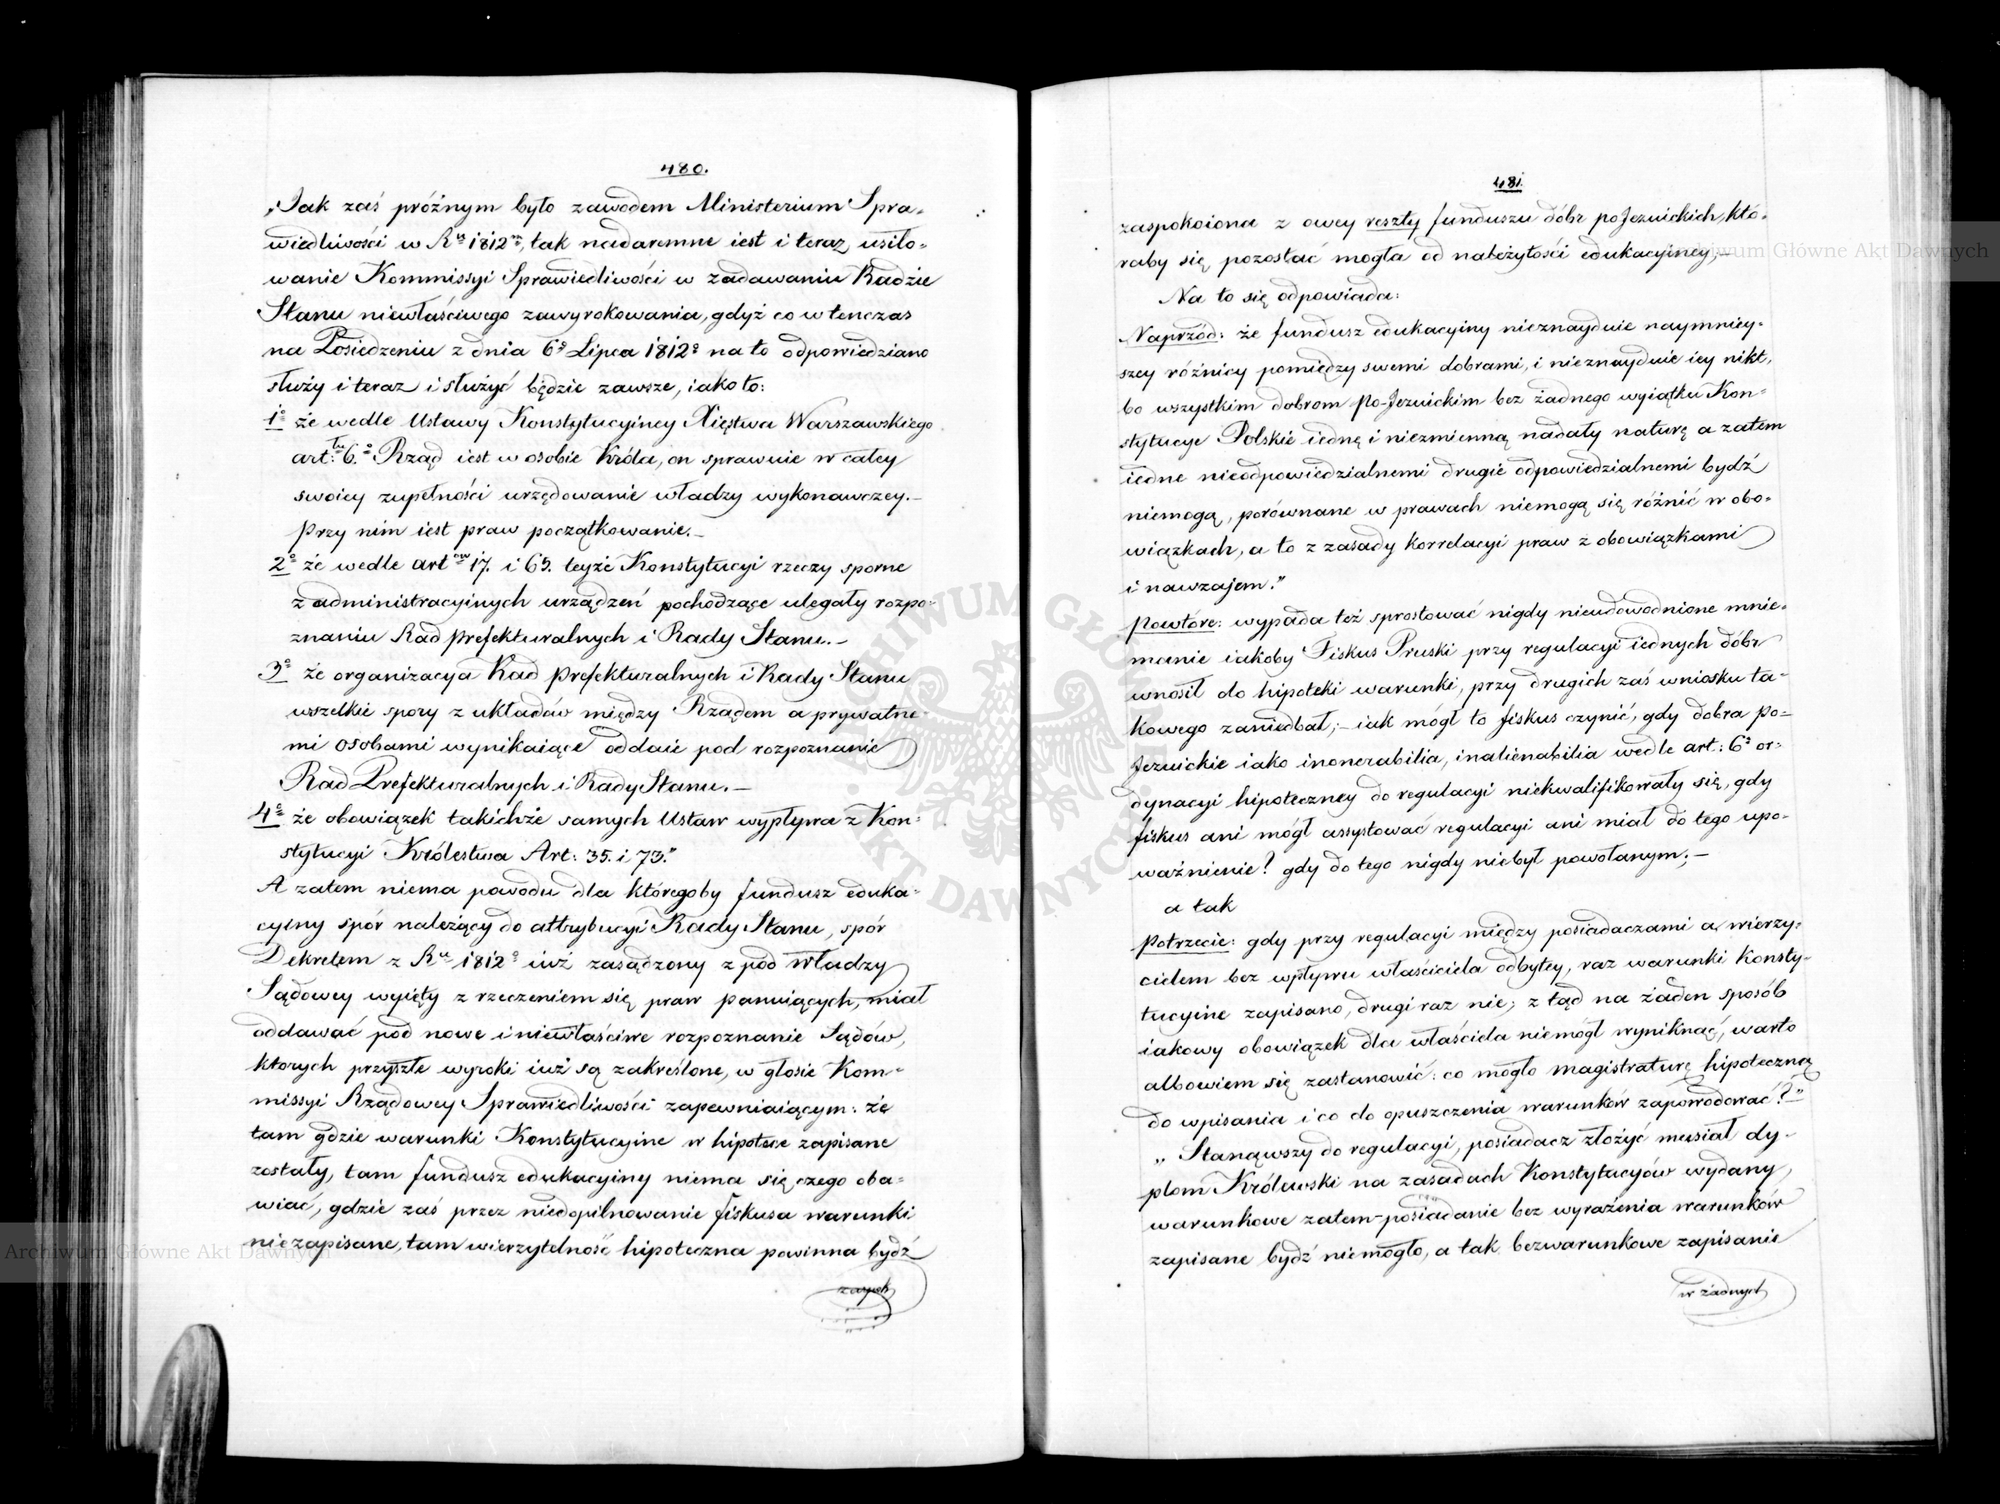 480.
„Jak zaś próżnym było zawodem Ministerium Spra-
wiedliwości w Ru 1812m, tak nadaremne iest i teraz usiło-
wanie Kommissyi Sprawiedliwości w zadawaniu Radzie
Stanu niewłaściwego zawyrokowania, gdyż co wtenczas
na Posiedzeniu z dnia 6o Lipca 1812o na to odpowiedziano
służy i teraz i służyć będzie zawsze, iako to:
1o że wedle Ustawy Konstytucyiney Xięstwa Warszawskiego
art:tu 6.o Rząd iest w osobie Króla, on sprawuie w całey
swoiey zupełności urzędowanie władzy wykonawczey.–
Przy nim iest praw początkowanie.–
2o że wedle artow 17. i 65. teyże Konstytucyi rzeczy sporne
z administracyinych urządzeń pochodzące ulegały rozpo-
znaniu Rad Prefekturalnych i Rady Stanu.–
3o że organizacya Rad Prefekturalnych i Rady Stanu
wszelkie spory z układów między Rządem a prywatne-
mi osobami wynikaiące oddaie pod rozpoznanie
Rad Prefekturalnych i Rady Stanu.–
4o że obowiązek takichże samych Ustaw wypływa z Kon-
stytucyi Królestwa Art: 35. i 73.”
A zatem niema powodu dla któregoby fundusz eduka-
cyiny spór należący do attrybucyi Rady Stanu, spór
Dekretem z Ru 1812o iuż zasądzony z pod władzy
Sądowey wyięty z rzeczeniem się praw panuiących, miał
oddawać pod nowe i niewłaściwe rozpoznanie Sądów,
ktorych przyszłe wyroki iuż są zakreślone, w głosie Kom-
missyi Rządowey Sprawiedliwości zapewniaiącym: że
tam gdzie warunki Konstytucyine w hipotece zapisane
zostały, tam fundusz edukacyiny niema się czego oba-
wiać, gdzie zaś przez niedopilnowanie fiskusa warunki
niezapisane, tam wierzytelność hipoteczna powinna bydź
zaspok
481.
zaspokoiona z owey reszty funduszu dóbr poJezuickich, któ-
raby się pozostać mogła od należytości edukacyiney;–
Na to się odpowiada:
Naprzód: że fundusz edukacyiny nieznayduie naymniey-
szey różnicy pomiędzy swemi dobrami, i nieznayduie iey nikt,
bo wszystkim dobrom Po-Jezuickim bez żadnego wyiątku Kon-
stytucye Polskie iednę i niezmienną nadały naturę a zatem
iedne nieodpowiedzialnemi drugie odpowiedzialnemi bydź
niemogą, porównane w prawach niemogą się różnić w obo-
wiązkach, a to z zasady korrelacyi praw z obowiązkami
i nawzajem.”
Powtóre: wypada też sprostować nigdy nieudowodnione mnie-
manie iakoby Fiskus Pruski przy regulacyi iednych dóbr
wnosił do hipoteki warunki, przy drugich zaś wniosku ta-
kowego zaniedbał;– iak mógł to fiskus czynić, gdy dobra po-
Jezuickie iako inonerabilia, inalienabilia wedle art: 6o or-
dynacyi hipoteczney do regulacyi niekwalifikowały się, gdy
fiskus ani mógł assystować regulacyi ani miał do tego upo-
ważnienie? gdy do tego nigdy niebył powołanym;–
a tak
Potrzecie: gdy przy regulacyi między posiadaczami a wierzy-
cielem bez wpływu właściciela odbytey, raz warunki Konsty-
tucyine zapisano, drugi raz nie; z tąd na żaden sposób
iakowy obowiązek dla właściciela niemógł wyniknąć, warto
albowiem się zastanowić: co mogło magistraturę hipoteczną
do wpisania i co do opuszczenia warunków zapowodować?”
„Stanąwszy do regulacyi, posiadacz złożyć musiał dy-
plom Królewski na zasadach Konstytucyów wydany,
warunkowe zatem posiadanie bez wyrażenia warunków
zapisane bydź niemogło, a tak bezwarunkowe zapisanie
w żadnych
Archiwum Główne Akt Dawnych
Archiwum Główne Akt Dawnych
ARCHIWUM GŁÓWNE AKT DAWNYCH